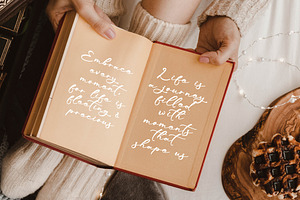 Embrace
every
moment,
for life is
fleeting &
precious
Life is
a journey
filled
with
moments
that
shape us